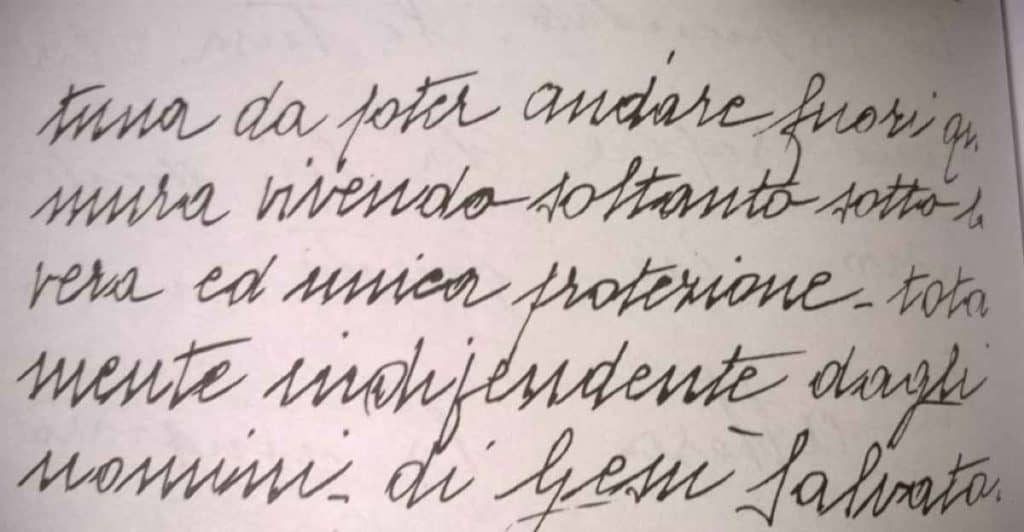 tuna da poter andare fuori
mura vivendo soltanto sotto la
vera ed unica protezione - tota
mente indipendente dagli
uomini - di Gesù Salvato.